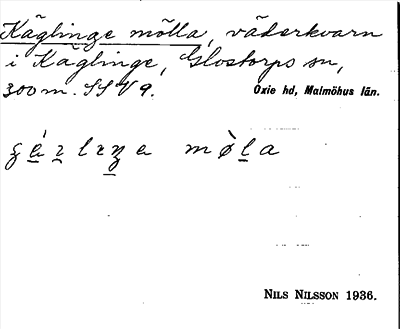 Käglinge mölla, väderkvarn
i Käglinge, Glostorps sn,
300 m. SSV 9.
Oxie hd, Malmöhus län.
NILS NILSSON 1936.